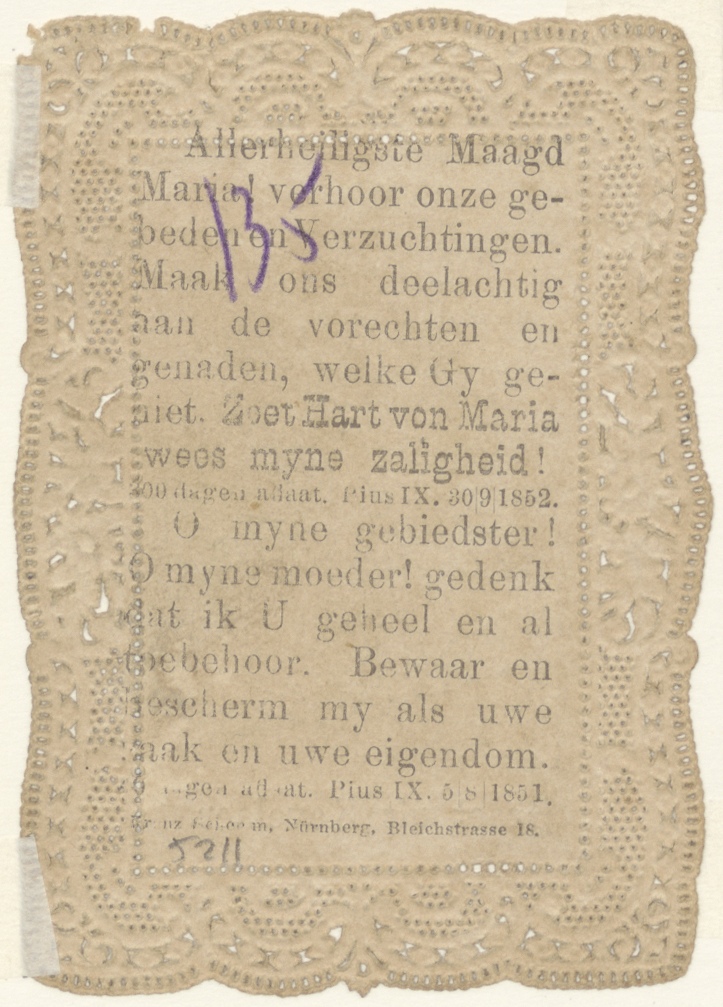 Allerheiligste Maagd
Maria! verhoor onze ge-
beden en Verzuchtingen.
Maak ons deelachtig
aan de vorechten en
genaden, welke Gy ge-
niet. Zoet Hart von Maria
wees myne zaligheid!
300 dagen aflaat. Pius IX. 30|9|1852.
O myne gebiedster!
O myne moeder! gedenk
dat ik U geheel en al
toebehoor. Bewaar en
bescherm my als uwe
zaak en uwe eigendom.
dagen aflaat. Pius IX. 5|8|1851.
Franz Nürnberg, Bleichstrasse 18.
135
5211